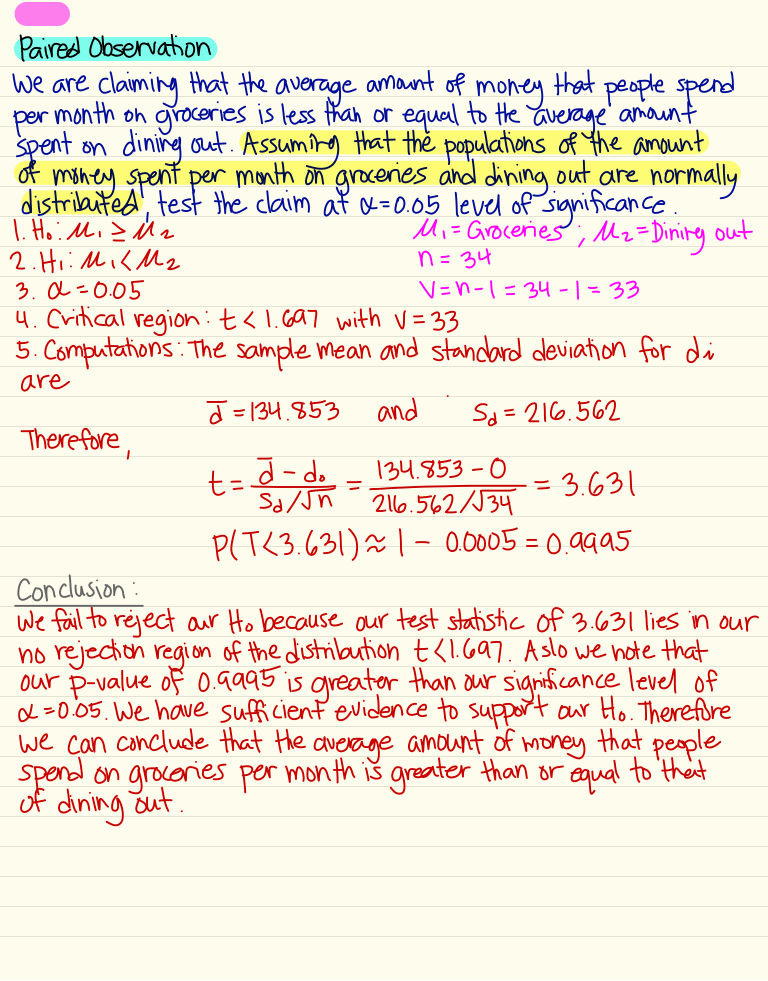 Paired Observation
We are claiming that the average amount of money that people spend
per month on groceries is less than or equal to the average amount
spent on dining out. Assuming that the populations of the amount
of money spent per month on groceries and dining out are normally
distributed, test the claim at α=0.05 level of significance.
1. H₀: μ₁ ≥ μ₂
μ₁ = Groceries ; μ₂ = Dining out
2. H₁: μ₁ < μ₂
n = 34
3. α = 0.05
v = n - 1 = 34 - 1 = 33
4. Critical region: t < 1.697 with v = 33
5. Computations: The sample mean and standard deviation for di
are
d̄ = 134.853 and Sd = 216.562
Therefore,
t = (d̄ - d₀)/(Sd/√n) = (134.853 - 0)/(216.562/√34) = 3.631
P(T<3.631) ≈ 1 - 0.0005 = 0.9995
Conclusion:
We fail to reject our H₀ because our test statistic of 3.631 lies in our
no rejection region of the distribution t<1.697. Aslo we note that
our p-value of 0.9995 is greater than our significance level of
α=0.05. We have sufficient evidence to support our H₀. Therefore
we can conclude that the average amount of money that people
spend on groceries per month is greater than or equal to that
of dining out.